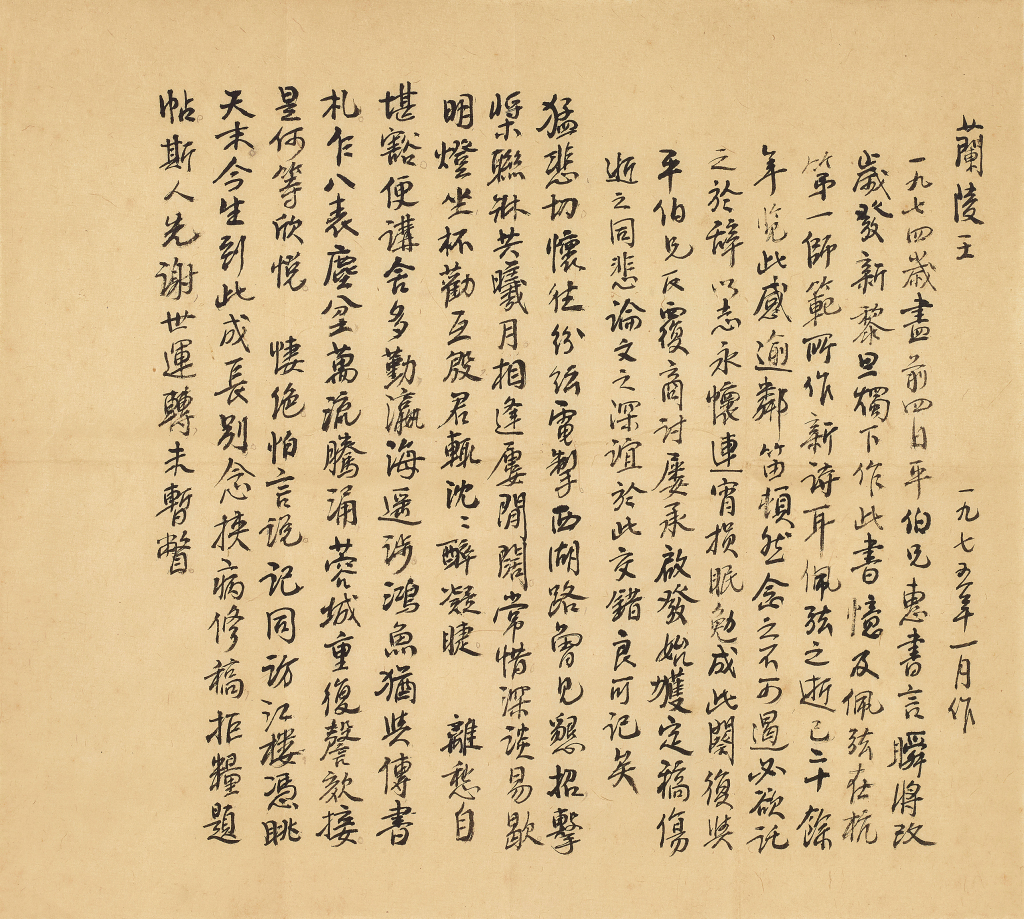 蘭陵王　一九七五年一月作
一九七四歲盡前四日平伯兄惠書言瞬將改
歲發新黎旦燭下作此書憶及佩弦在杭
第一師範所作新詩耳佩弦之逝已二十餘
年覽此感逾鄰笛頓然念之不可遏必欲託
之於辭以志永懷連宵損眠勉成此闋復與
平伯兄反覆商討屢承啟發始獲定稿傷
逝之同悲論文之深誼於此交錯良可記矣
猛悲切懷往紛紜電掣西湖路曾見懇招擊
槳聯牀共曦月相逢屢間闊常惜深談易歇
明燈坐杯勸互殷君輒沈〻醉凝睫　離愁自
堪豁便講舍多勤瀛海遥涉鴻魚猶與傳書
札乍八表塵坌萬流騰涌蓉城重復謦欬接
是何等欣悦　悽絶怕言説記同訪江樓憑眺
天末今生到此成長别念挾病修稿拒糧題
帖斯人先謝世運轉未暫瞥